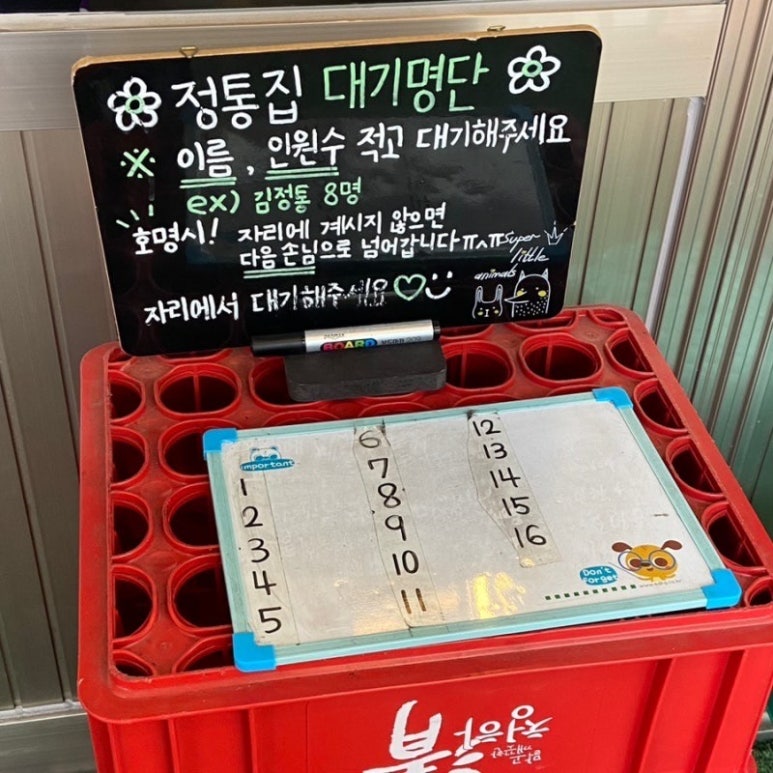 정통집 대기명단
※ 이름, 인원수 적고 대기해주세요
ex) 김정통 8명
호명시! 자리에 계시지 않으면
다음 손님으로 넘어갑니다ㅠㅅㅠ
super
little
animals
자리에서 대기해주세요♡
BOARD
important
1
2
3
4
5
6
7
8
9
10
11
12
13
14
15
16
Don't
forget
청하
맑은
깨끗한